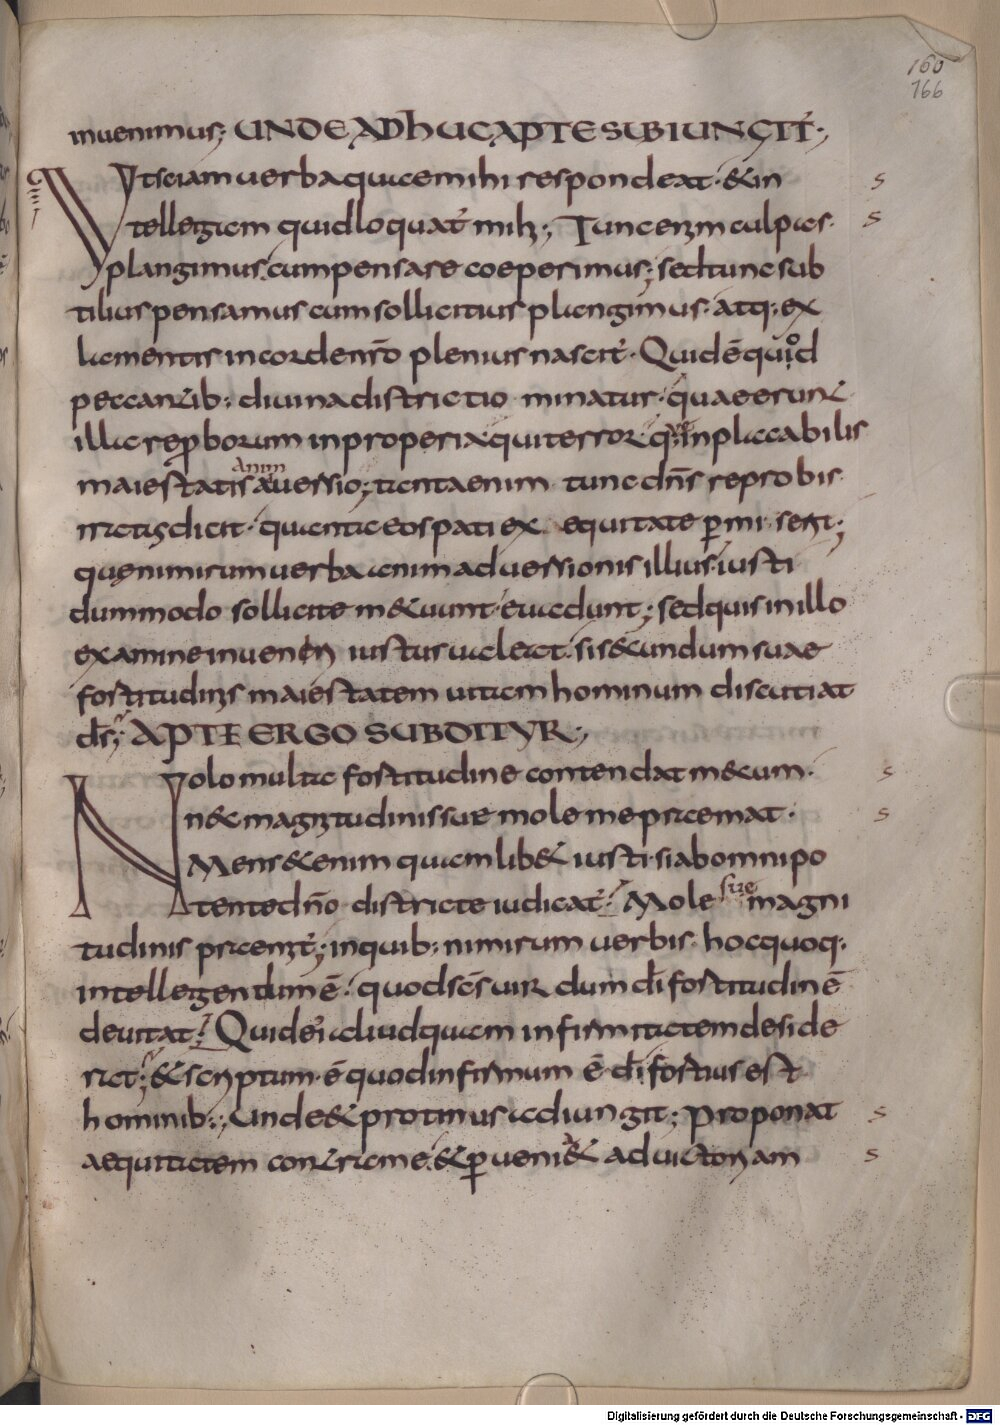 160
166
inuenimus; UNDE ADHUC APTE SUBIUNGIT̃;
Vt sciam uerba quae mihi respondeat · & in
tellegam quid loquat̃ mih; Tunc enim culpas ·
plangimus. cum pensare coeperimus; sed tunc sub
tilius pensamus cum sollicitius plangimus · atq; ex
lamentis in corde nr̄o plenius nascit̃ · Quid ē quod
peccantib; diuina districtio minatur · quae erunt
illa reproborum inproperia · qui terror quae inplacabilis
maiestatis auersio; tanta enim tunc dn̄s reprobis
anim
iratus dicit · quanta eos pati ex equitate p̄miserit;
quę nimirum uerba animaduersionis illius · iusti
dum modo sollicite m&uunt · euadunt; sed quis in illo
examine inueniri iustus ualeat. si s&undum suae
fortitudinis maiestatem uitam hominum discutiat
dś; APTE ERGO SUBDITUR;
Nolo multa fortitudine contendat mecum ·
n& magnitudinis suae mole me praemat ·
Mens &enim quamlib& iusti · si ab omnipo
tente dn̄o districte iudicat̃; Mole suae magni
tudinis praemit̃; in quib; nimirum uerbis · hoc quoq;
intellegendum ē · quod sc̄s uir dum dī fortitudinē
deuitat; Quid ei aliud quam infirmitatem deside
rat; & scriptum · ē quod infirmum ē dī fortius est
hominib;; Unde & protinus adiungit; Proponat
aequitatem contra me. & p̄ueni& ad uictoriam
s
s
s
s
s
s
Digitalisierung gefördert durch die Deutsche Forschungsgemeinschaft - DFG